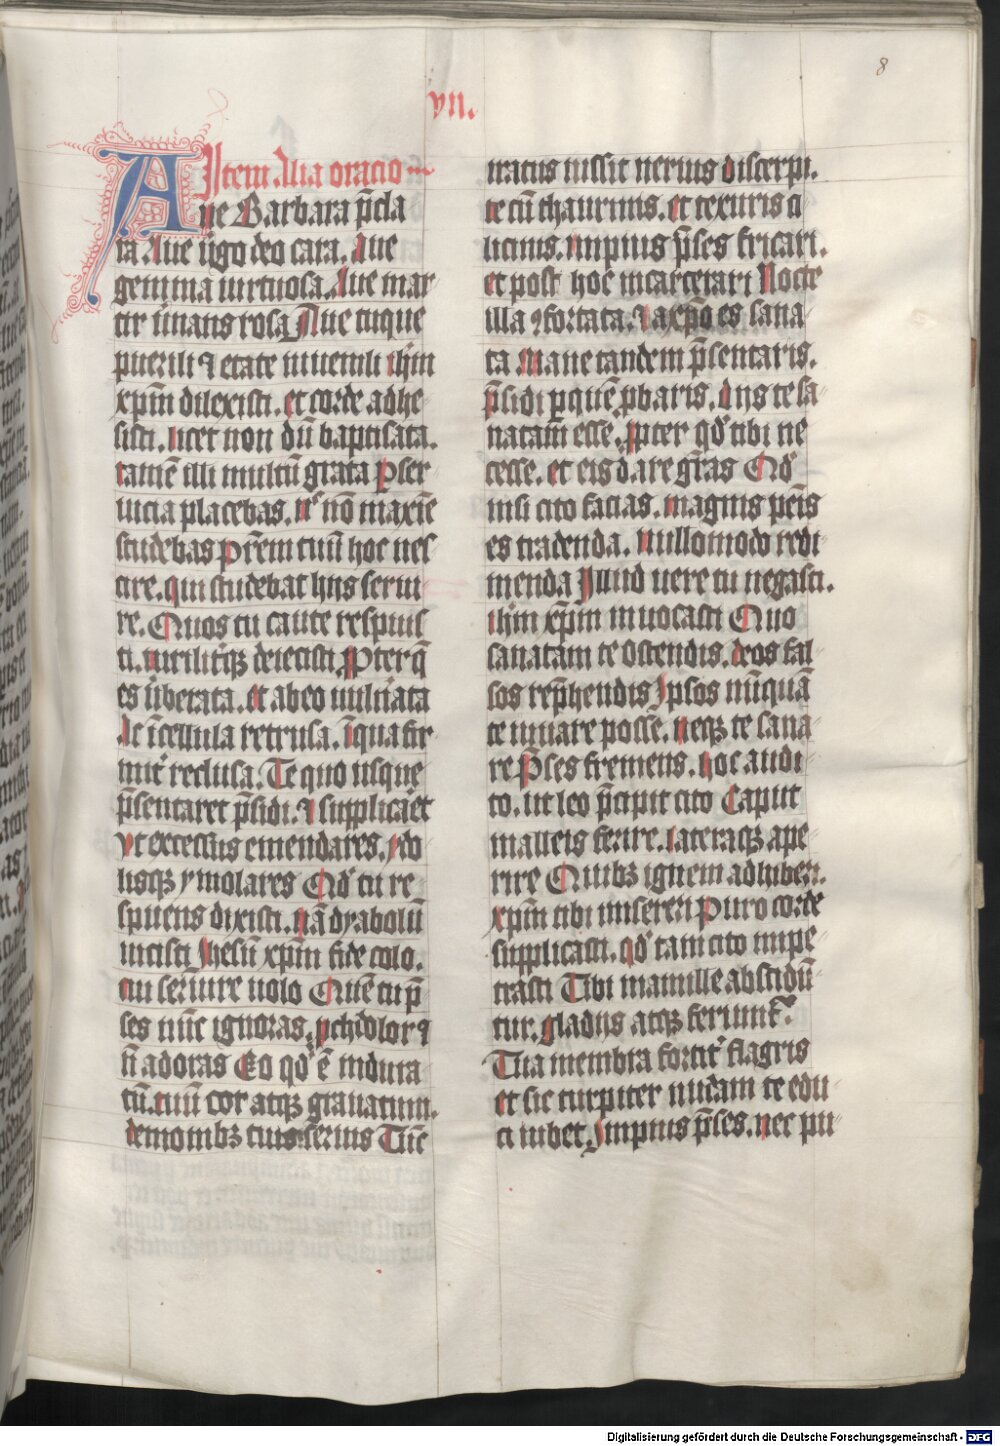 8
vii.
Item Alia oracio
Aue Barbara p̄cla
ra Aue ūgo deo cara. Aue
gemma uirtuosa. Aue mar
tir ūnans rosa Aue tuque
puerili ⁊ etate iuuenili ih̄m
xp̄m dilexisti. et corde adhe
sisti. licet non dū baptisata.
tamē illi multū grata Per
placebas. nō maxīe
studebas Prēm tuū hoc nes
cire. qui studebat hijs serui
re. Quos tu caute respuis
ti. uirilitqꝫ deiecisti Pter q̄
es ūberata. et ab eo uulnāta
Ac ī cellula retrusa. ī qua fir
mit̾ reclusa. Te quo usque
p̄sentaret p̄sidi. ⁊ supplicāet
vt excessus emendares. ydo
lisqꝫ ymolares Qd̾ tu re
spuens dixisti. nā dyabolū
uicisti Jhesū xp̄m fide colo.
cui serūire uolo Quē tu p̄
ses nūc ignoras. pchdolor ⁊
n̄ adoras Eo qd̾ ē indura
tū. tuū cor atqꝫ grauatum.
demonibꝫ tuis seruis Tūc
iratus iussit neruis discerpi.
te cū thaurinis. et texturis ci
licinis. impius p̄ses fricari.
et post hoc incarcerari Nocte
illa ꝯfortata. ⁊ a xp̄o es sana
ta Mane tandem p̄sentaris.
p̄sidi p quē pbaris. dijs te sa
natam esse. Ppter qd̾ tibi ne
cesse. et eis dare gr̄as Qd̾
nisi cito facias. magnis peīs
es tradenda. nullomodo redi
menda Illud uere tu negasti.
ih̄m xp̄m inuocasti Quo
sanatam te ostendis. deos fal
sos rep̄hendis Ipsos nūquā
te iuuare posse. neqꝫ te sana
re P̄ses fremens. hoc audi
to. ut leo p̄cipit cito Caput
malleis ferire. lateraqꝫ ape
rire Quibꝫ ignem adhiberi.
xp̄m tibi misereri Puro corde
supplicasti. qd̾ tam cito impe
trasti Tibi mamille abscidū
tur. gladijs atqꝫ feriunt̾.
Tua membra fortit̾ flagris
et sic turpiter nudam te edu
ci iubet. Impius p̄ses. nec pu
Digitalisierung gefördert durch die Deutsche Forschungsgemeinschaft - DFG